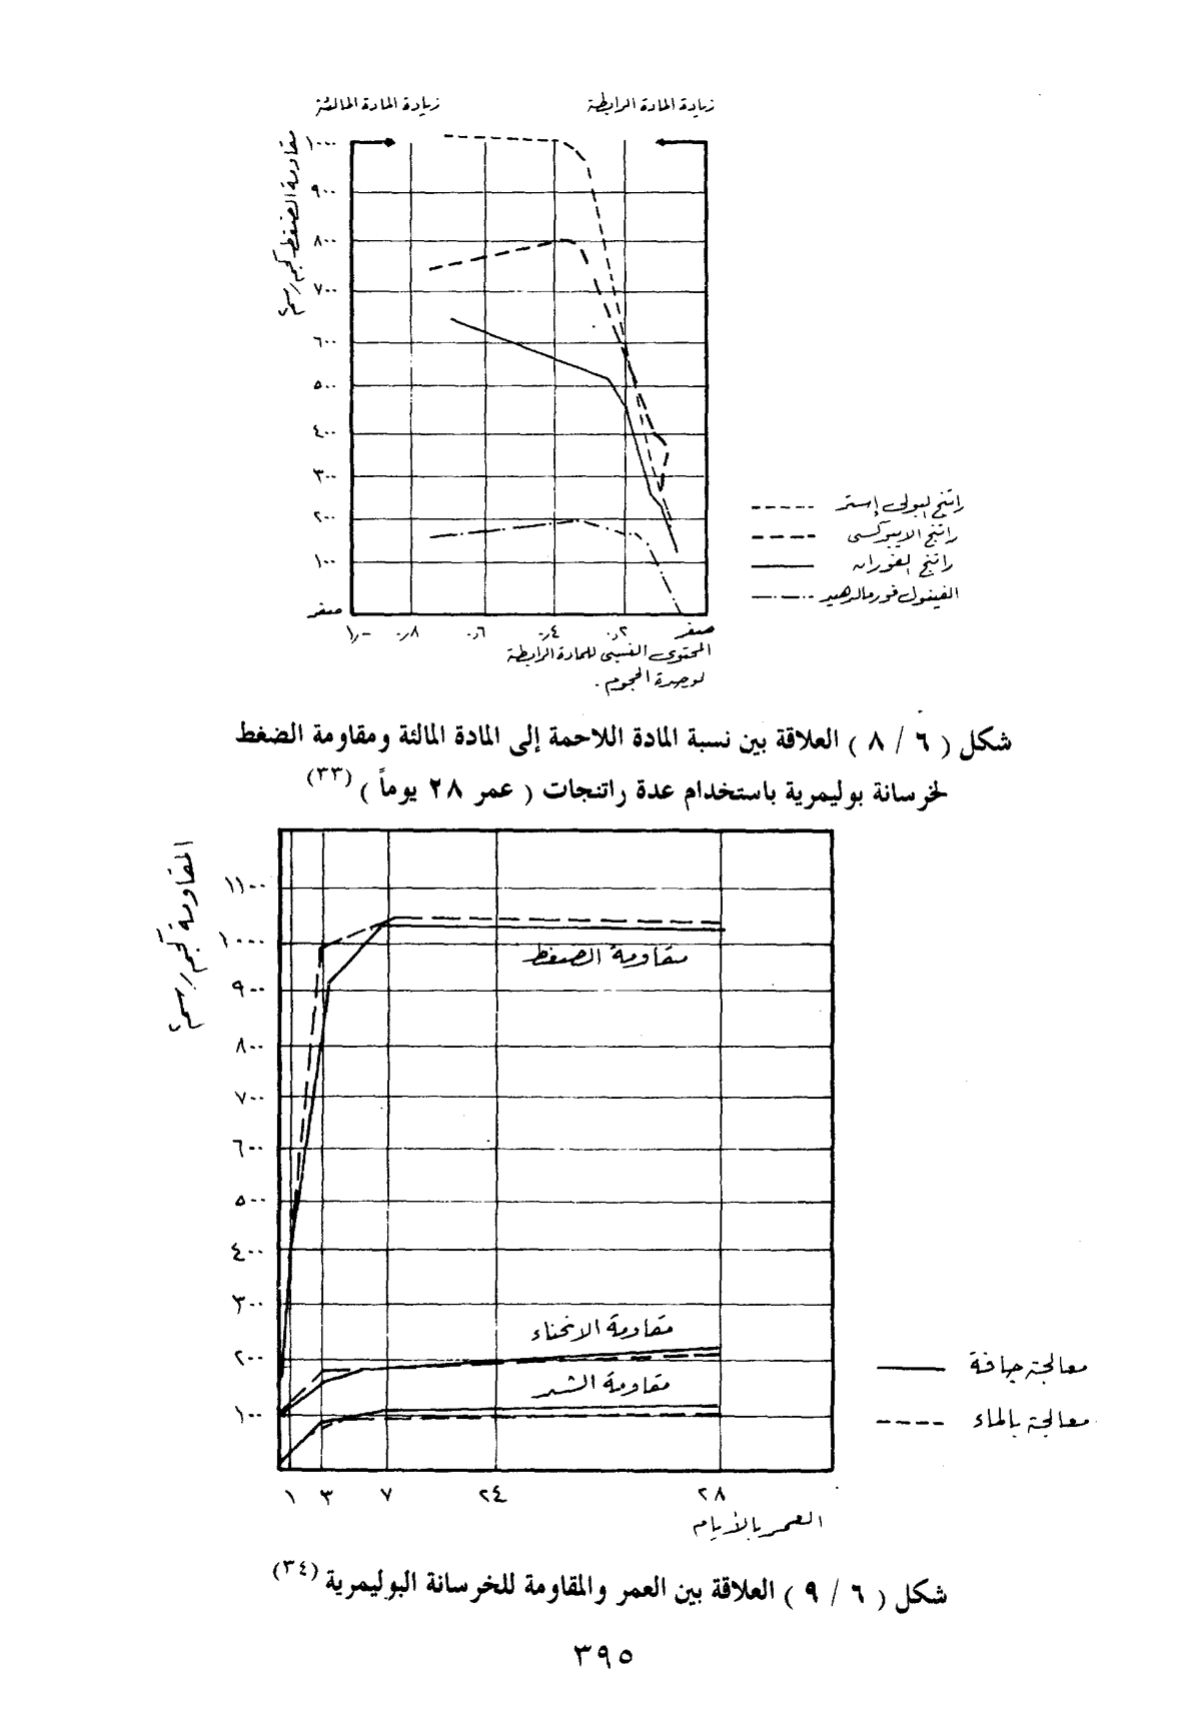 زيادة المادة الرابطة
زيادة المادة المالئة
مقاومة الضغط كجم/سم٢
١٠٠٠
٩٠٠
٨٠٠
٧٠٠
٦٠٠
٥٠٠
٤٠٠
٣٠٠
٢٠٠
١٠٠
صفر
صفر
٠٫٢
٠٫٤
٠٫٦
٠٫٨
١٫٠
المحتوى النسبي للمادة الرابطة
لوحدة الحجوم .
راتنج البولى إستر
راتنج الايبوكسى
راتنج الفوران
الفينول فورمالدهيد
شكل ( ٦ / ٨ ) العلاقة بين نسبة المادة اللاحمة إلى المادة المالئة ومقاومة الضغط
لخرسانة بوليمرية باستخدام عدة راتنجات ( عمر ٢٨ يوماً ) (٣٣)
المقاومة كجم/سم٢
١١٠٠
١٠٠٠
٩٠٠
٨٠٠
٧٠٠
٦٠٠
٥٠٠
٤٠٠
٣٠٠
٢٠٠
١٠٠
مقاومة الضغط
مقاومة الانحناء
مقاومة الشد
معالجة جافة
معالجة بالماء
١ ٣ ٧ ٢٤ ٢٨
العمر بالأيام
شكل ( ٦ / ٩ ) العلاقة بين العمر والمقاومة للخرسانة البوليمرية (٣٤)
٣٩٥